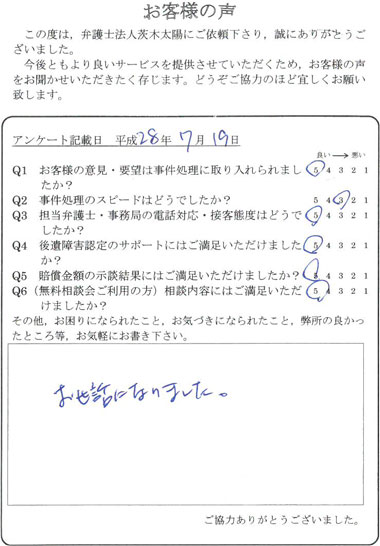 お客様の声
この度は，弁護士法人茨木太陽にご依頼下さり，誠にありがとうご
ざいました。
今後ともより良いサービスを提供させていただくため，お客様の声
をお聞かせいただきたく存じます。どうぞご協力のほど宜しくお願い
致します。
アンケート記載日 平成28年7月19日
良い → 悪い
Q1 お客様の意見・要望は事件処理に取り入れられまし 5 4 3 2 1
たか？
Q2 事件処理のスピードはどうでしたか？ 5 4 3 2 1
Q3 担当弁護士・事務局の電話対応・接客態度はどうで 5 4 3 2 1
したか？
Q4 後遺障害認定のサポートにはご満足いただけました 5 4 3 2 1
か？
Q5 賠償金額の示談結果にはご満足いただけましたか？ 5 4 3 2 1
Q6（無料相談会ご利用の方）相談内容にはご満足いただ 5 4 3 2 1
けましたか？
その他，お困りになられたこと，お気づきになられたこと，弊所の良かっ
たところ等，お気軽にお書き下さい。
お世話になりました。
ご協力ありがとうございました。